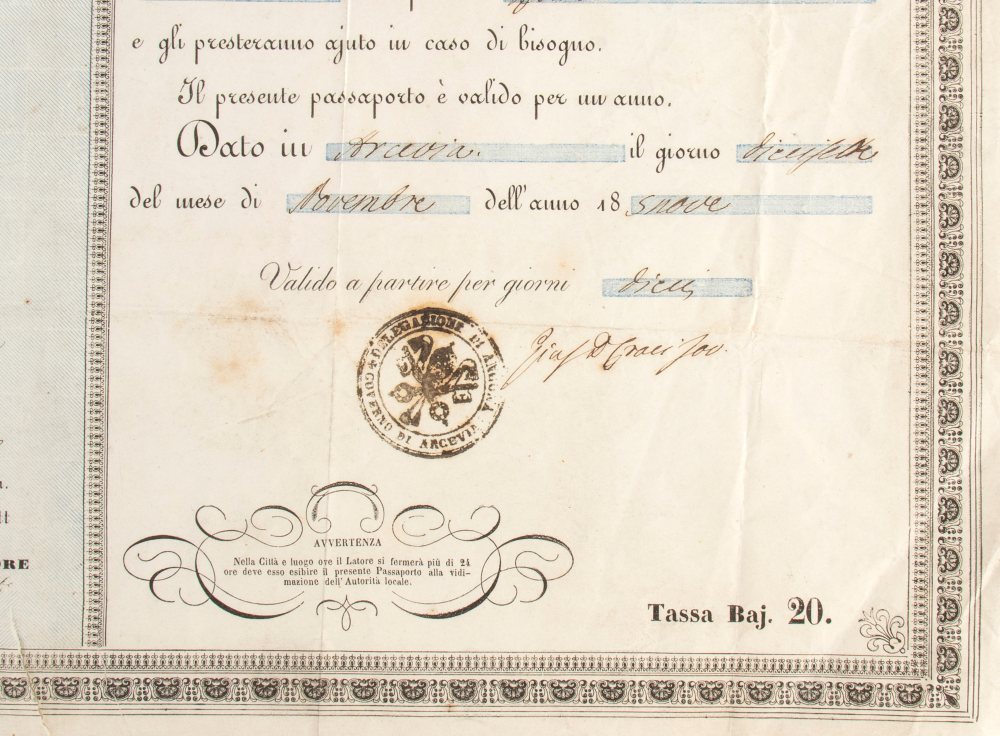 e gli presteranno ajuto in caso di bisogno.
Il presente passaporto è valido per un anno.
Dato in Arcevia. il giorno
del mese di Novembre dell'anno 18
Valido a partire per giorni dieci
DELEGAZIONE DI ANCONA
GOVERNO DI ARCEVIA
AVVERTENZA
Nella Città e luogo ove il Latore si fermerà più di 24
ore deve esso esibire il presente Passaporto alla vidi-
mazione dell'Autorità locale.
Tassa Baj. 20.